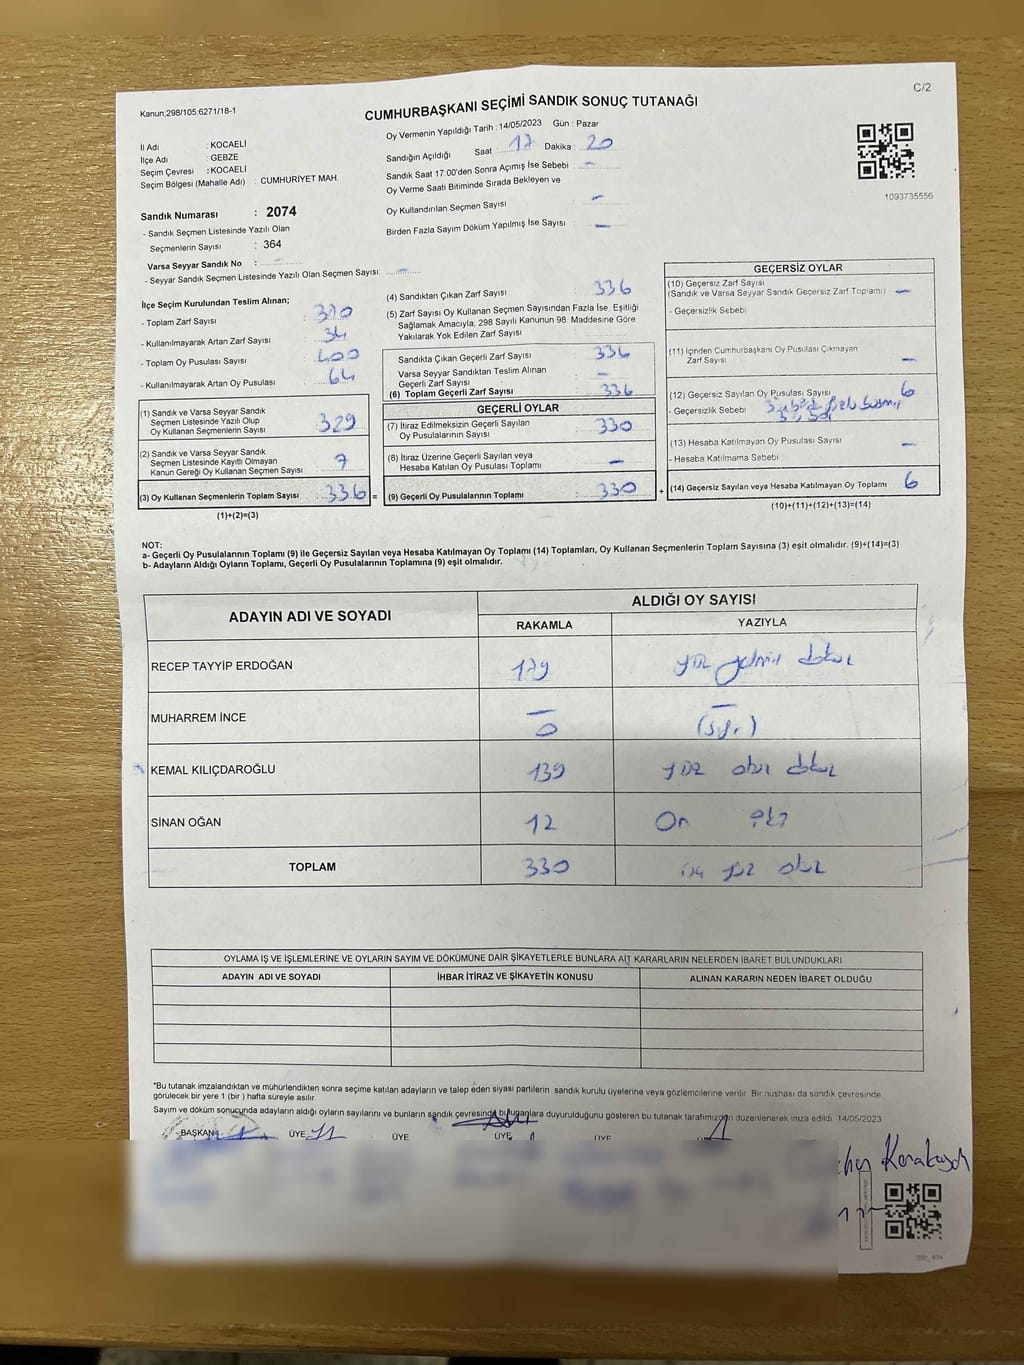 C/2
Kanun:298/105,6271/18-1
CUMHURBAŞKANI SEÇİMİ SANDIK SONUÇ TUTANAĞI
İl Adı : KOCAELİ
İlçe Adı : GEBZE
Seçim Çevresi : KOCAELİ
Seçim Bölgesi (Mahalle Adı) : CUMHURİYET MAH.
Sandık Numarası : 2074
- Sandık Seçmen Listesinde Yazılı Olan
Seçmenlerin Sayısı : 364
Varsa Seyyar Sandık No : -
- Seyyar Sandık Seçmen Listesinde Yazılı Olan Seçmen Sayısı: -
Oy Vermenin Yapıldığı Tarih : 14/05/2023 Gün : Pazar
Sandığın Açıldığı Saat : 17 Dakika : 20
Sandık Saat 17.00'den Sonra Açımış İse Sebebi : -
Oy Verme Saati Bitiminde Sırada Bekleyen ve
Oy Kullandırılan Seçmen Sayısı : -
Birden Fazla Sayım Döküm Yapılmış İse Sayısı : -
1093735556
İlçe Seçim Kurulundan Teslim Alınan;
- Toplam Zarf Sayısı : 370
- Kullanılmayarak Artan Zarf Sayısı : 34
- Toplam Oy Pusulası Sayısı : 400
- Kullanılmayarak Artan Oy Pusulası : 64
(1) Sandık ve Varsa Seyyar Sandık
Seçmen Listesinde Yazılı Olup
Oy Kullanan Seçmenlerin Sayısı : 329
(2) Sandık ve Varsa Seyyar Sandık
Seçmen Listesinde Kayıtlı Olmayan
Kanun Gereği Oy Kullanan Seçmen Sayısı : 7
(3) Oy Kullanan Seçmenlerin Toplam Sayısı : 336 =
(1)+(2)=(3)
(4) Sandıktan Çıkan Zarf Sayısı : 336
(5) Zarf Sayısı Oy Kullanan Seçmen Sayısından Fazla İse, Eşitliği
Sağlamak Amacıyla; 298 Sayılı Kanunun 98. Maddesine Göre
Yakılarak Yok Edilen Zarf Sayısı :
Sandıkta Çıkan Geçerli Zarf Sayısı : 336
Varsa Seyyar Sandıktan Teslim Alınan
Geçerli Zarf Sayısı : -
(6) Toplam Geçerli Zarf Sayısı : 336
GEÇERLİ OYLAR
(7) İtiraz Edilmeksizin Geçerli Sayılan
Oy Pusulalarının Sayısı : 330
(8) İtiraz Üzerine Geçerli Sayılan veya
Hesaba Katılan Oy Pusulası Toplamı : -
(9) Geçerli Oy Pusulalarının Toplamı : 330 +
GEÇERSİZ OYLAR
(10) Geçersiz Zarf Sayısı
(Sandık ve Varsa Seyyar Sandık Geçersiz Zarf Toplamı) : -
- Geçersizlik Sebebi
(11) İçinden Cumhurbaşkanı Oy Pusulası Çıkmayan
Zarf Sayısı : -
(12) Geçersiz Sayılan Oy Pusulası Sayısı : 6
- Geçersizlik Sebebi
(13) Hesaba Katılmayan Oy Pusulası Sayısı : -
- Hesaba Katılmama Sebebi
(14) Geçersiz Sayılan veya Hesaba Katılmayan Oy Toplamı : 6
(10)+(11)+(12)+(13)=(14)
NOT:
a- Geçerli Oy Pusulalarının Toplamı (9) ile Geçersiz Sayılan veya Hesaba Katılmayan Oy Toplamı (14) Toplamları, Oy Kullanan Seçmenlerin Toplam Sayısına (3) eşit olmalıdır. (9)+(14)=(3)
b- Adayların Aldığı Oyların Toplamı, Geçerli Oy Pusulalarının Toplamına (9) eşit olmalıdır.
ADAYIN ADI VE SOYADI ALDIĞI OY SAYISI
RAKAMLA YAZIYLA
RECEP TAYYİP ERDOĞAN 179 yüz yetmiş dokuz
MUHARREM İNCE - 0 - (sıfır)
KEMAL KILIÇDAROĞLU 139 yüz otuz dokuz
SİNAN OĞAN 12 On iki
TOPLAM 330 üç yüz otuz
OYLAMA İŞ VE İŞLEMLERİNE VE OYLARIN SAYIM VE DÖKÜMÜNE DAİR ŞİKAYETLERLE BUNLARA AİT KARARLARIN NELERDEN İBARET BULUNDUKLARI
ADAYIN ADI VE SOYADI İHBAR İTİRAZ VE ŞİKAYETİN KONUSU ALINAN KARARIN NEDEN İBARET OLDUĞU
*Bu tutanak imzalandıktan ve mühürlendikten sonra seçime katılan adayların ve talep eden siyasi partilerin sandık kurulu üyelerine veya gözlemcilerine verilir. Bir nushası da sandık çevresinde
görülecek bir yere 1 (bir) hafta süreyle asılır.
Sayım ve döküm sonucunda adayların aldığı oyların sayılarını ve bunların sandık çevresinde bulunanlara duyurulduğunu gösteren bu tutanak tarafımızdan düzenlenerek imza edildi. 14/05/2023
BAŞKAN ÜYE ÜYE ÜYE ÜYE